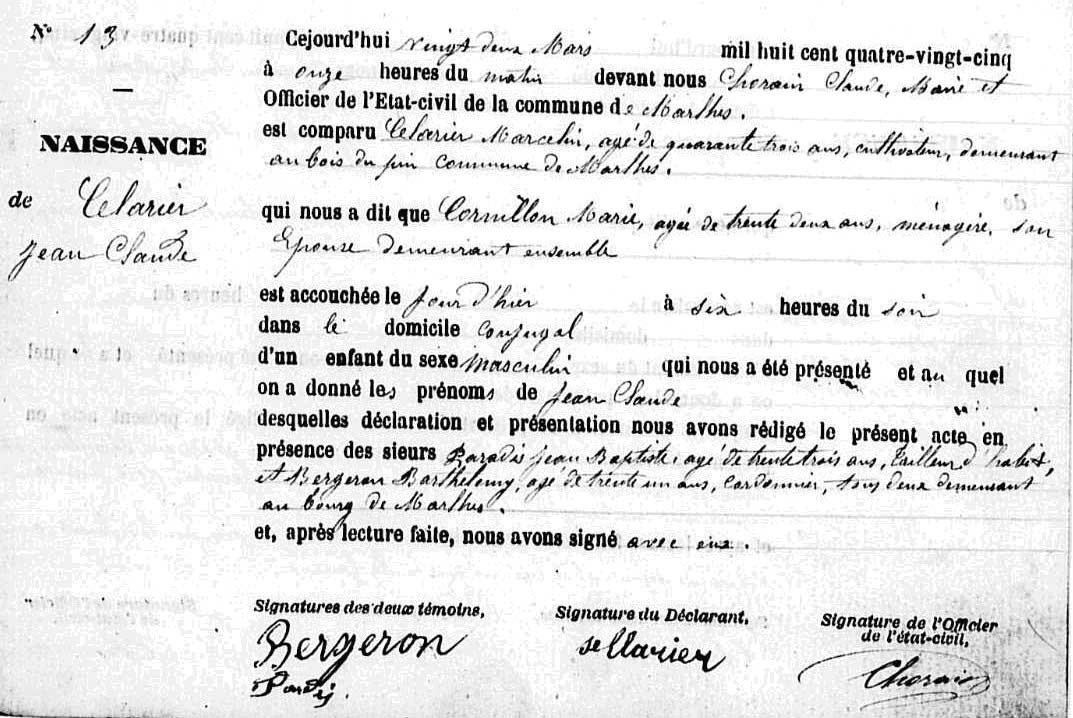 N° 13
NAISSANCE
de Celarier
Jean Claude
Cejourd'hui vingt deux Mars mil huit cent quatre-vingt-cinq
à onze heures du matin devant nous Chorain Claude, Maire et
Officier de l'Etat-civil de la commune de Marlhes.
est comparu Celarier Marcelin, agé de quarante trois ans, cultivateur, demeurant
au bois du pin commune de Marlhes.
qui nous a dit que Cornillon Marie, agée de trente deux ans, ménagère, son
Epouse demeurant ensemble
est accouchée le jour d'hier à six heures du soir
dans le domicile conjugal
d'un enfant du sexe masculin qui nous a été présenté et au quel
on a donné les prénoms de Jean Claude
desquelles déclaration et présentation nous avons rédigé le présent acte en
présence des sieurs Paradis Jean Baptiste, agé de trente trois ans, tailleur d'habits,
et Bergeron Barthelemy, agé de trente un ans, cordonnier, tous deux demeurant
au bourg de Marlhes.
et, après lecture faite, nous avons signé avec eux.
Signatures des deux témoins,
Bergeron
Signature du Déclarant,
sellarier
Signature de l'Officier
de l'état-civil,
Chorain